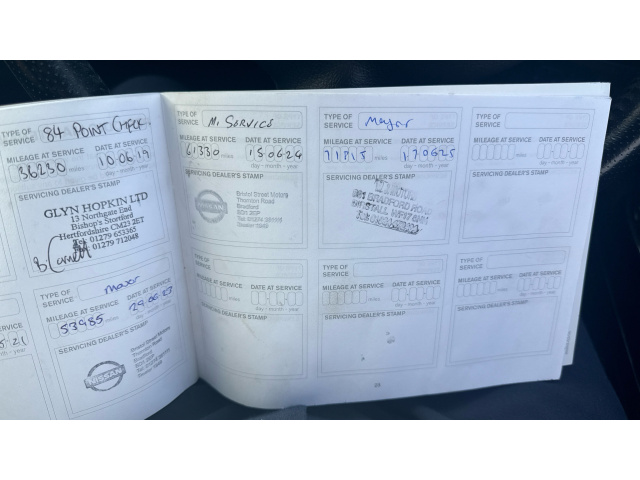 TYPE OF SERVICE 84 POINT CHECK.
MILEAGE AT SERVICE DATE AT SERVICE
36230 miles 10-06-19
day - month - year
SERVICING DEALER'S STAMP
GLYN HOPKIN LTD
13 Northgate End
Bishop's Stortford
Hertfordshire CM23 2ET
Tel 01279 653365
01279 712048
TYPE OF SERVICE Major
MILEAGE AT SERVICE DATE AT SERVICE
53985 miles 29-06-23
day - month - year
SERVICING DEALER'S STAMP
NISSAN
Bristol Street Motors
Thornton Road
Bradford
SERVICE
5 21
th - year
STAMP
TYPE OF SERVICE M. SERVICE
MILEAGE AT SERVICE DATE AT SERVICE
61330 miles 150624
day - month - year
SERVICING DEALER'S STAMP
NISSAN
Bristol Street Motors
Thornton Road
Bradford
TYPE OF SERVICE Major
MILEAGE AT SERVICE DATE AT SERVICE
71715 miles 170625
day - month - year
SERVICING DEALER'S STAMP
BRADFORD ROAD
TYPE OF SERVICE
MILEAGE AT SERVICE DATE AT SERVICE
miles
day - month - year
SERVICING DEALER'S STAMP
TYPE OF SERVICE
MILEAGE AT SERVICE DATE AT SERVICE
miles
day - month - year
SERVICING DEALER'S STAMP
TYPE OF SERVICE
MILEAGE AT SERVICE DATE AT SERVICE
miles
day - month - year
SERVICING DEALER'S STAMP
TYPE OF SERVICE
MILEAGE AT SERVICE DATE AT SERVICE
miles
day - month - year
SERVICING DEALER'S STAMP